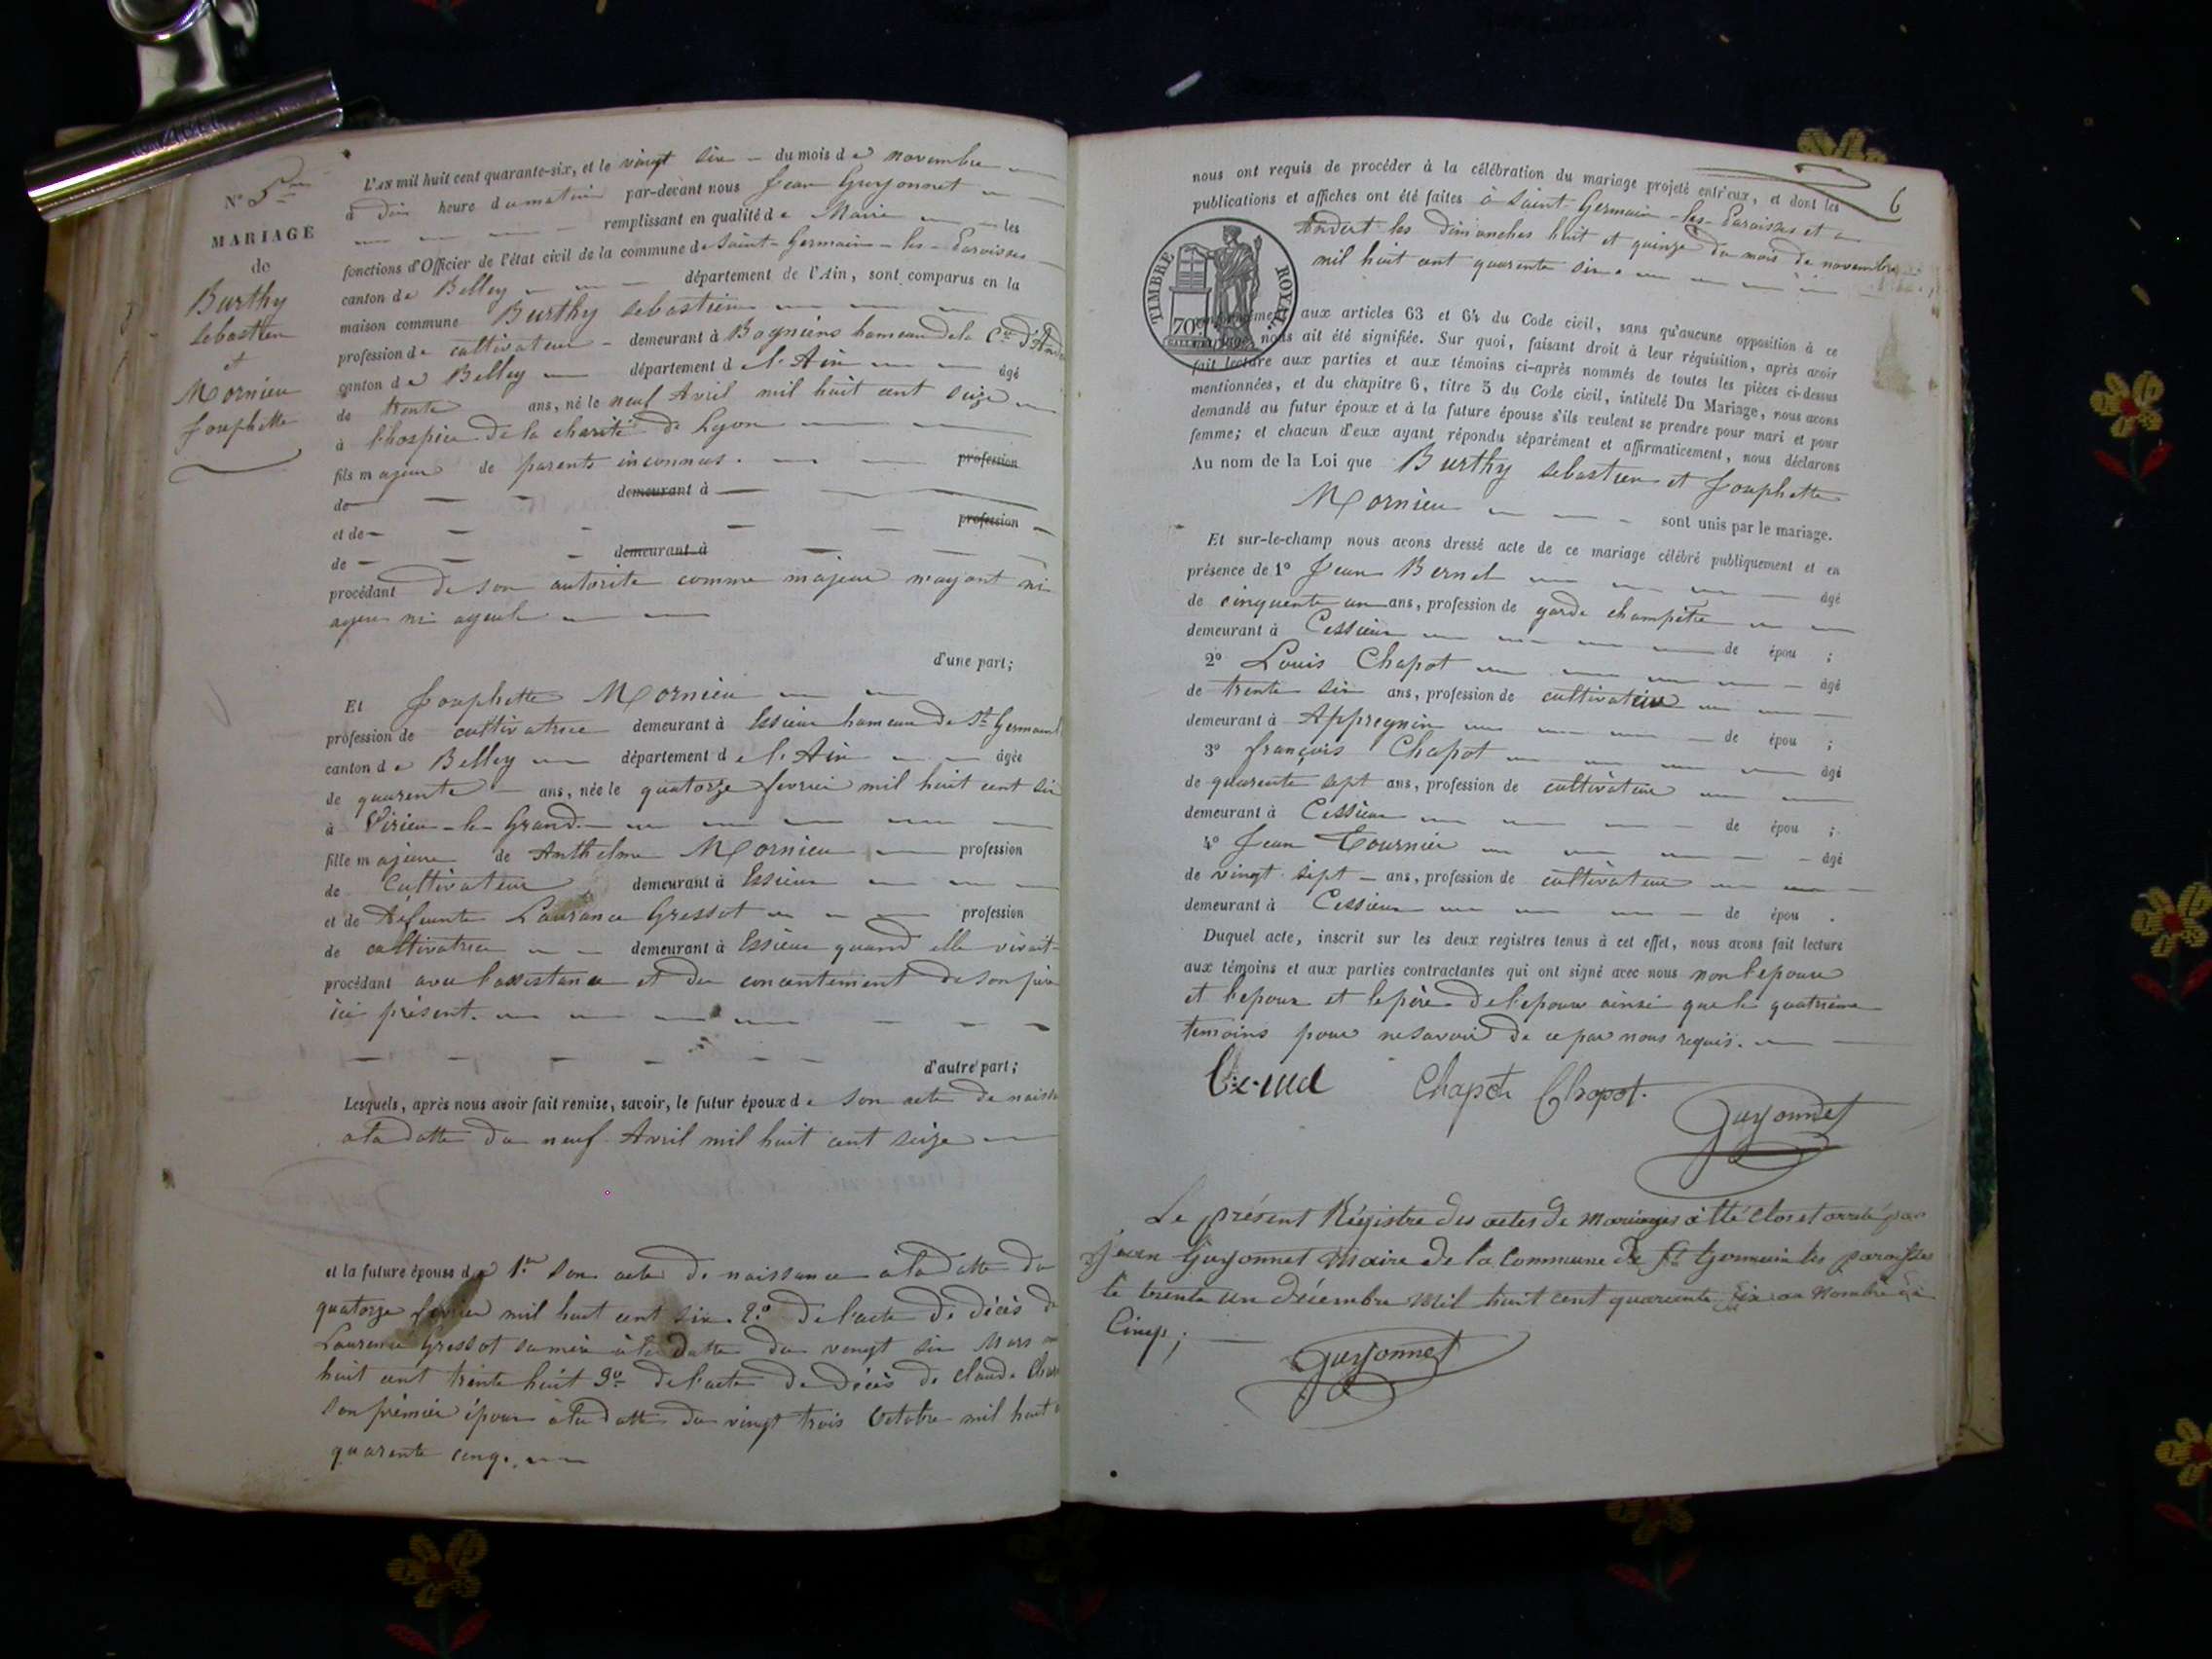 N° 5
MARIAGE
de
Burthy
sebastien
et
Mornieu
Josephette
L'AN mil huit cent quarante-six, et le vingt six du mois de novembre
à dix heure du matin par-devant nous Jean Guyonnet
remplissant en qualité de Maire les
fonctions d'Officier de l'état civil de la commune de Saint-Germain-les-Paroisses
canton de Belley département de l'Ain, sont comparus en la
maison commune Burthy sebastien
profession de cultivateur demeurant à Bogniens hameau de la Cne d'Andert
canton de Belley département de l'Ain âgé
de trente ans, né le neuf Avril mil huit cent seize
à l'hospice de la charité de Lyon
fils majeur de parents inconnus. profession
de demeurant à
et de profession
de demeurant à
procédant de son autorite comme majeur n'ayant ni
ayeux ni ayeule
d'une part;
Et Josephette Mornieu
profession de cultivatrice demeurant à Essieux hameau de St Germain
canton de Belley département de l'Ain âgée
de quarente ans, née le quatorze fevrier mil huit cent six
à Virieu-le-Grand
fille majeure de Anthelme Mornieu profession
de Cultivateur demeurant à Essieux
et de défunte Laurance Gressot profession
de cultivatrice demeurant à Essieux quand elle vivait
procédant avec l'assistance et du concentement de son père
ici présent.
d'autre part;
Lesquels, après nous avoir fait remise, savoir, le futur époux de son acte de naissa
a la datte du neuf Avril mil huit cent seize
et la future épouse de 1° son acte de naissance à la datte du
quatorze fevrier mil huit cent six. 2° de l'acte de décès de
Laurence Gressot sa mère à la datte du vingt six Mars
huit cent trente huit 3° de l'acte de décès de claude
son prémier époux à la datte du vingt trois Octobre mil huit
quarente cinq.
6
nous ont requis de procéder à la célébration du mariage projeté entr'eux, et dont les
publications et affiches ont été faites à Saint-Germain-les-Paroisses et a
Andert les dimanches huit et quinze du mois de novembre
mil huit cent quarente six
TIMBRE ROYAL.
70
aux articles 63 et 64 du Code civil, sans qu'aucune opposition à ce
nous ait été signifiée. Sur quoi, faisant droit à leur réquisition, après avoir
fait lecture aux parties et aux témoins ci-après nommés de toutes les pièces ci-dessus
mentionnées, et du chapitre 6, titre 5 du Code civil, intitulé Du Mariage, nous avons
demandé au futur époux et à la future épouse s'ils veulent se prendre pour mari et pour
femme; et chacun d'eux ayant répondu séparément et affirmativement, nous déclarons
Au nom de la Loi que Burthy sebastien et Josephette
Mornieu sont unis par le mariage.
Et sur-le-champ nous avons dressé acte de ce mariage célébré publiquement et en
présence de 1° Jean Bernel âgé
de cinquente un ans, profession de garde champêtre
demeurant à Cessieux de épou ;
2° Louis Chapot âgé
de trente six ans, profession de cultivateur
demeurant à Appregnin de épou ;
3° françois Chapot âgé
de quarente sept ans, profession de cultivateur
demeurant à Cessieux de épou ;
4° Jean Tournier âgé
de vingt sept ans, profession de cultivateur
demeurant à Cessieux de épou .
Duquel acte, inscrit sur les deux registres tenus à cet effet, nous avons fait lecture
aux témoins et aux parties contractantes qui ont signé avec nous non l'epouse
et l'epoux et le père de l'epouse ainsi que le quatrième
temoins pour ne savoir de ce par nous requis.
Chapot Chapot.
Guyonnet
Le présent Régistre des actes de mariages a été clos et arrêté par
Jean Guyonnet Maire de la Commune de St Germain les paroisses
le trente un décembre Mil huit cent quarante six au Nombre de
Cinq;
Guyonnet